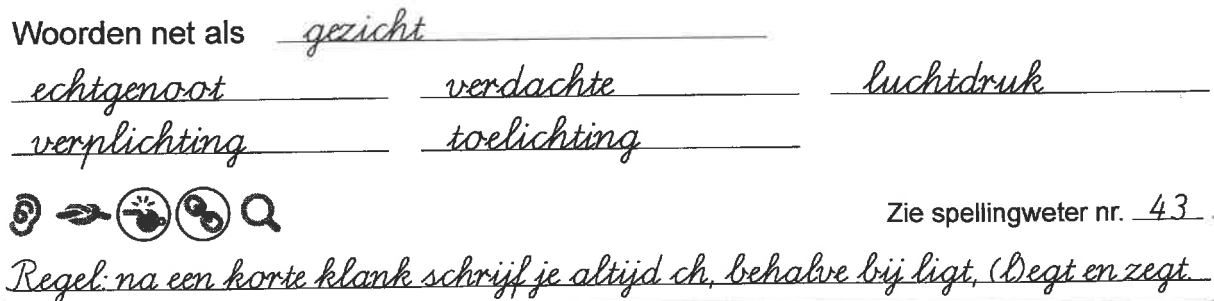 Woorden net als gezicht
echtgenoot verdachte luchtdruk
verplichting toelichting
Zie spellingweter nr. 43
Regel: na een korte klank schrijf je altijd ch, behalve bij ligt, (l)egt en zegt.